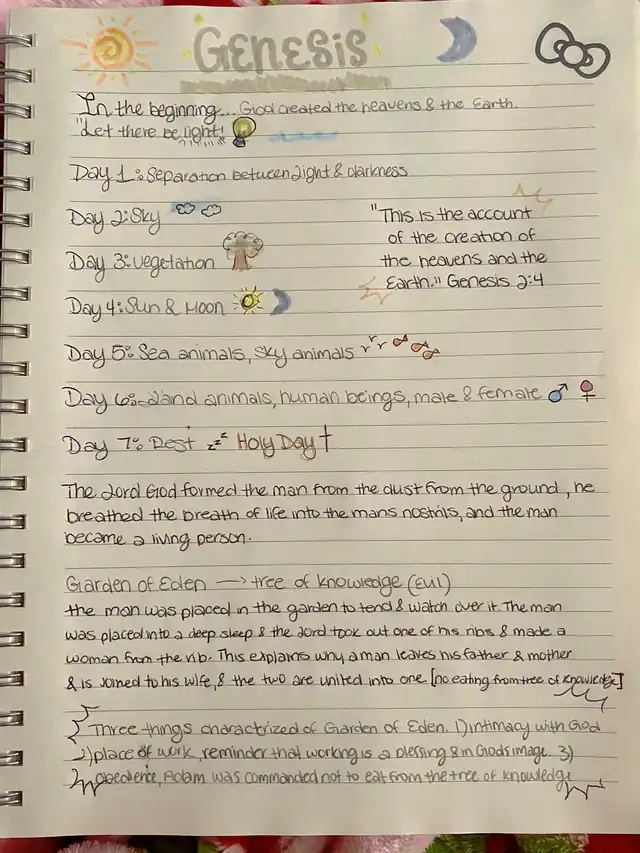 GENESIS
In the beginning... God created the heavens & the Earth.
"Let there be light!"
Day 1: Separation between light & darkness
Day 2: Sky
"This is the account
of the creation of
the heavens and the
Earth." Genesis 2:4
Day 3: vegetation
Day 4: Sun & Moon
Day 5: Sea animals, sky animals
Day 6: Land animals, human beings, male & female ♂ ♀
Day 7: Rest zzz Holy Day †
The Lord God formed the man from the dust from the ground, he
breathed the breath of life into the mans nostrils, and the man
became a living person.
Garden of Eden → tree of knowledge (Evil)
the man was placed in the garden to tend & watch over it. The man
was placed into a deep sleep & the Lord took out one of his ribs & made a
woman from the rib. This explains why a man leaves his father & mother
& is joined to his wife, & the two are united into one. [no eating from tree of knowledge]
Three things charactrized of Garden of Eden. 1) intimacy with God
2) place of work, reminder that working is a blessing & in Gods image. 3)
obedience, Adam was commanded not to eat from the tree of knowledge